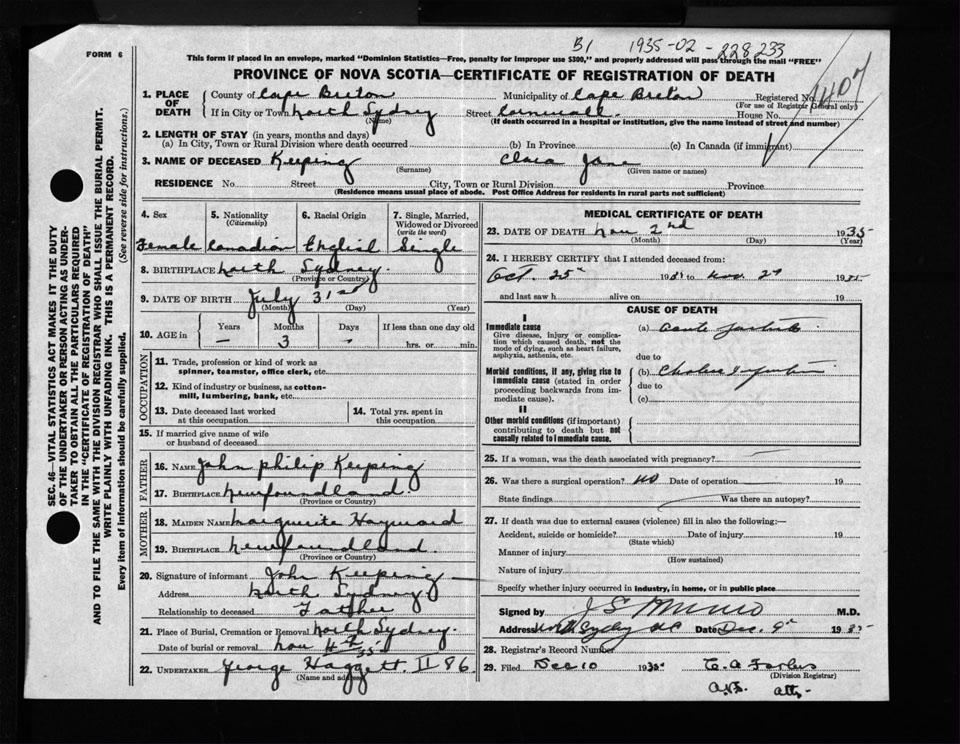 B1 1935-02-228233
1407
FORM 6
This form if placed in an envelope, marked "Dominion Statistics—Free, penalty for improper use $300," and properly addressed will pass through the mail "FREE"
PROVINCE OF NOVA SCOTIA—CERTIFICATE OF REGISTRATION OF DEATH
SEC. 46—VITAL STATISTICS ACT MAKES IT THE DUTY
OF THE UNDERTAKER OR PERSON ACTING AS UNDER-
TAKER TO OBTAIN ALL THE PARTICULARS REQUIRED
IN THE "CERTIFICATE OF REGISTRATION OF DEATH"
AND TO FILE THE SAME WITH THE DIVISION REGISTRAR WHO SHALL ISSUE THE BURIAL PERMIT.
WRITE PLAINLY WITH UNFADING INK. THIS IS A PERMANENT RECORD.
Every item of information should be carefully supplied. (See reverse side for instructions.)
1. PLACE OF DEATH County of Cape Breton Municipality of Cape Breton Registered No.
(For use of Registrar General only)
If in City or Town North Sydney Street Cornwall. House No.
(Name) (If death occurred in a hospital or institution, give the name instead of street and number)
2. LENGTH OF STAY (in years, months and days)
(a) In City, Town or Rural Division where death occurred (b) In Province (c) In Canada (if immigrant)
3. NAME OF DECEASED Keeping Clara Jane
(Surname) (Given name or names)
RESIDENCE No. Street City, Town or Rural Division Province
(Residence means usual place of abode. Post Office Address for residents in rural parts not sufficient)
4. Sex 5. Nationality (Citizenship) 6. Racial Origin 7. Single, Married, Widowed or Divorced (write the word)
Female Canadian English Single
8. BIRTHPLACE North Sydney.
(Province or Country)
9. DATE OF BIRTH July 31st
(Month) (Day) (Year)
10. AGE in Years Months Days If less than one day old
— 3 - hrs. or min.
OCCUPATION
11. Trade, profession or kind of work as
spinner, teamster, office clerk, etc.
12. Kind of industry or business, as cotton-
mill, lumbering, bank, etc.
13. Date deceased last worked at this occupation
14. Total yrs. spent in this occupation
15. If married give name of wife
or husband of deceased
FATHER
16. NAME John Philip Keeping
17. BIRTHPLACE Newfoundland.
(Province or Country)
MOTHER
18. MAIDEN NAME Marguerite Hayward
19. BIRTHPLACE Newfoundland.
(Province or Country)
20. Signature of informant John Keeping
Address North Sydney
Relationship to deceased Father
21. Place of Burial, Cremation or Removal North Sydney.
Date of burial or removal Nov 4th 35
22. UNDERTAKER George Haggett. II 86.
(Name and address)
MEDICAL CERTIFICATE OF DEATH
23. DATE OF DEATH Nov 2nd 1935
(Month) (Day) (Year)
24. I HEREBY CERTIFY that I attended deceased from:
Oct. 25th 1935 to Nov. 2nd 1935
and last saw h alive on 19
CAUSE OF DEATH
I
Immediate cause
Give disease, injury or complica-
tion which caused death, not the
mode of dying, such as heart failure,
asphyxia, asthenia, etc.
(a) Acute
due to
Morbid conditions, if any, giving rise to
immediate cause (stated in order
proceeding backwards from im-
mediate cause).
(b) Cholera Infantum
due to
(c)
II
Other morbid conditions (if important)
contributing to death but not
causally related to immediate cause.
25. If a woman, was the death associated with pregnancy? —
26. Was there a surgical operation? No Date of operation 19
State findings Was there an autopsy?
27. If death was due to external causes (violence) fill in also the following:—
Accident, suicide or homicide? Date of injury 19
(State which)
Manner of injury
(How sustained)
Nature of injury
Specify whether injury occurred in industry, in home, or in public place
Signed by J S Munro M.D.
Address North Sydney NS Date Dec. 9th 1935
28. Registrar's Record Number
29. Filed Dec 10 1935 C. A. Forbes
(Division Registrar)